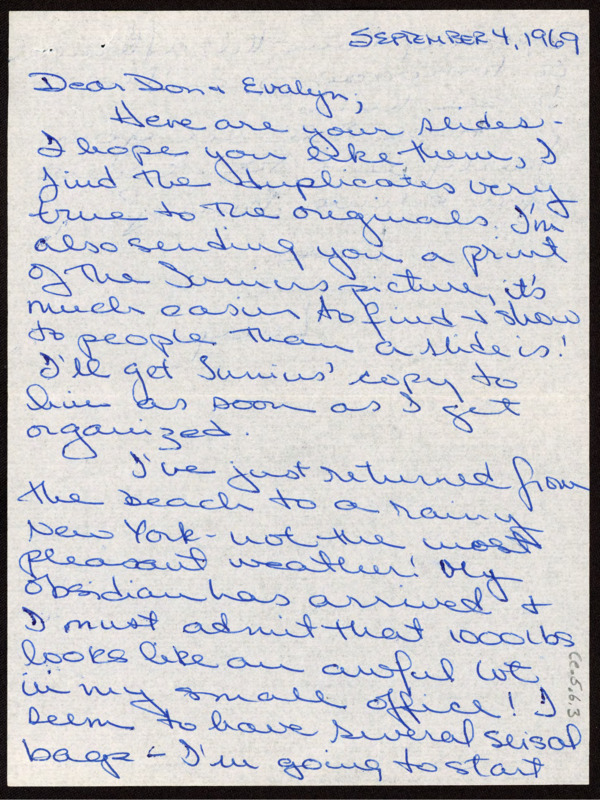 SEPTEMBER 4, 1969
Dear Don & Evalyn;
Here are your slides -
I hope you like them, I
find the duplicates very
true to the originals. I'm
also sending you a print
of the Junius picture, it's
much easier to find & show
to people than a slide is!
I'll get Junius' copy to
him as soon as I get
organized.
I've just returned from
the beach to a rainy
New York - not the most
pleasant weather! My
obsidian has arrived &
I must admit that 1000 lbs
looks like an awful lot
in my small office! I
seem to have several seisal
bags - I'm going to start
CC.5.6.3